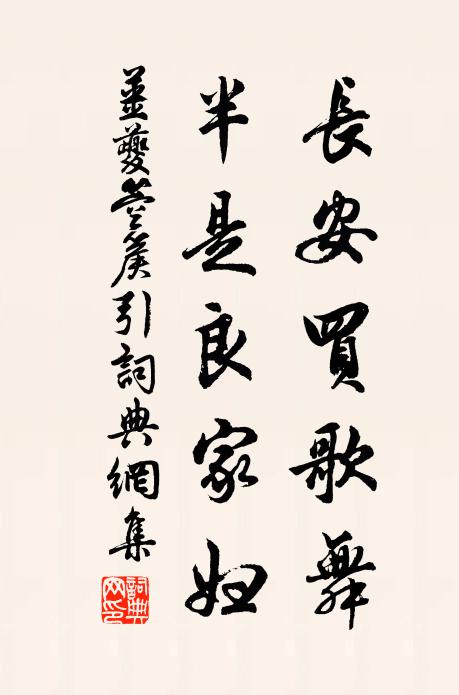 長安買歌舞
半是良家婦
姜夔箜篌引詞典網集
詞典網印